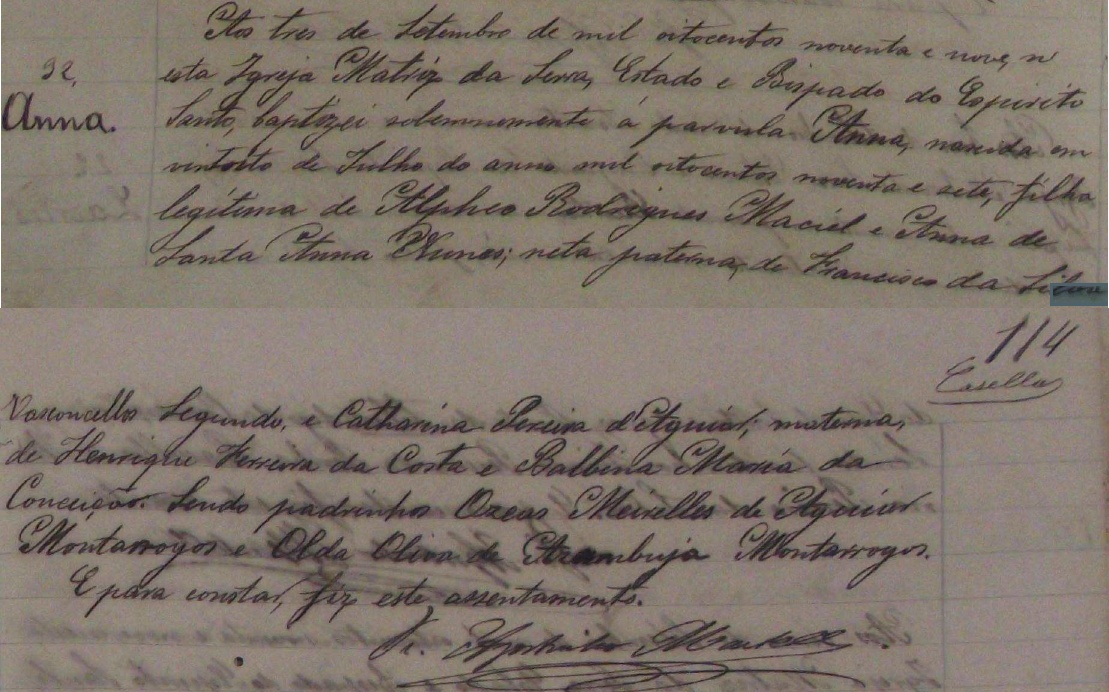 Aos tres de Setembro de mil oitocentos noventa e nove, n'
92,
esta Igreja Matriz da Serra, Estado e Bispado do Espirito
Anna.
Santo, baptizei solemnemente á parvula Anna, nascida em
vintoito de Julho do anno mil oitocentos noventa e sete, filha
legítima de Alpheo Rodrigues Maciel e Anna de
Santa Anna Nunes; neta paterna, de Francisco da Silva
114
Vasconcellos Segundo, e Catharina Pereira d'Aguiar; materna,
de Henrique Ferreira da Costa e Balbina Maria da
Conceição. Sendo padrinhos Ozeas Meirelles de Aguiar
Montarroyos e Olda Oliva de Azambuja Montarroyos.
E para constar, fiz este assentamento.